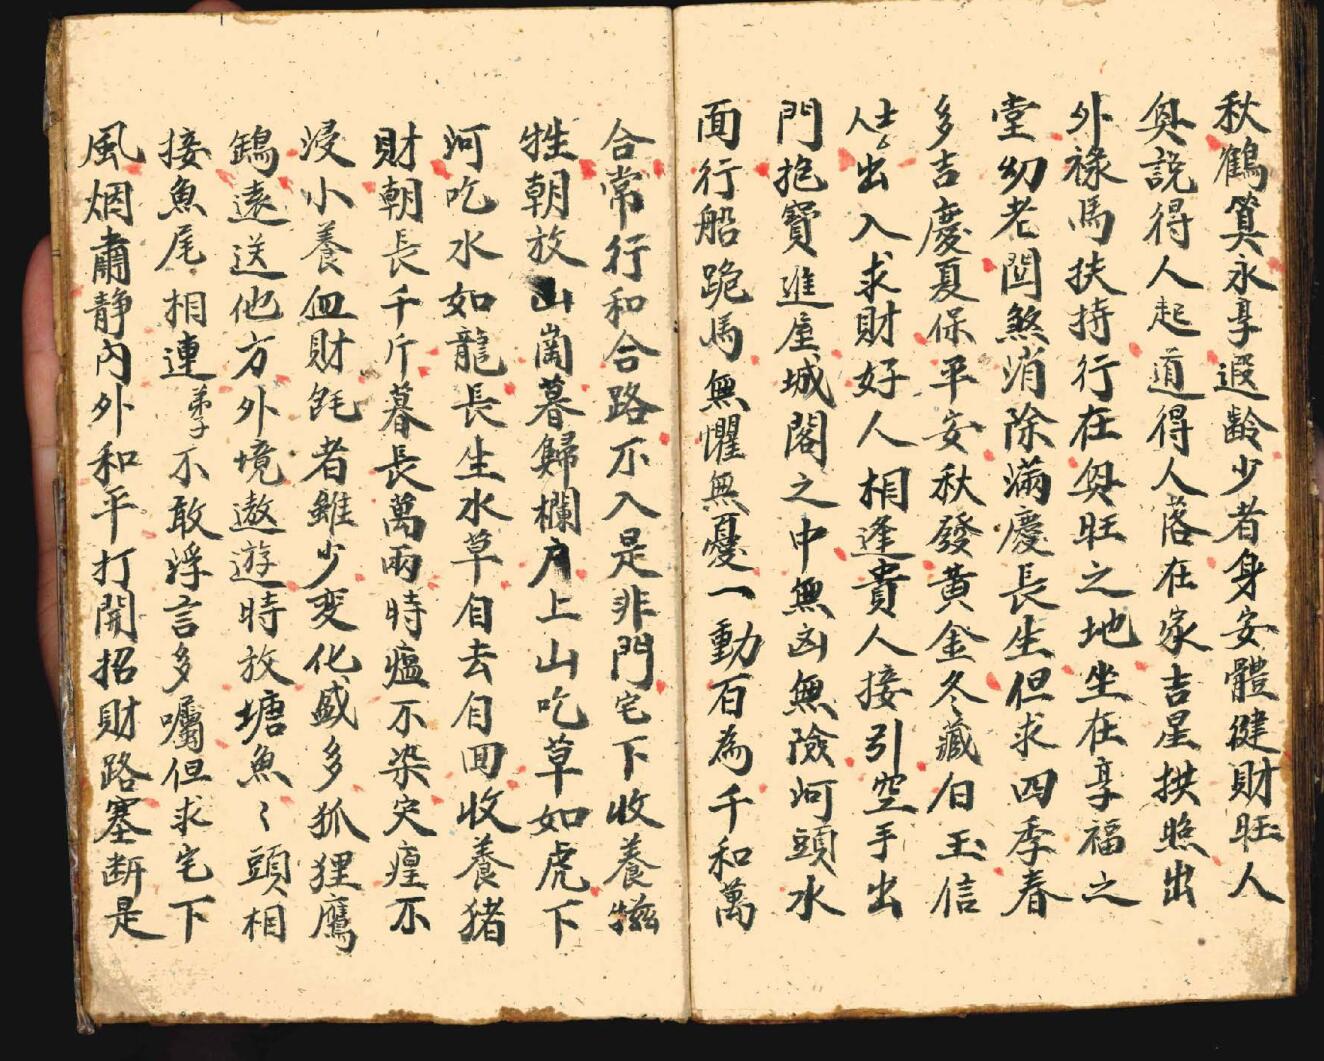 秋鶴筭永享遐齡少者身安體健財旺人
具説得人起道得人落在家吉星拱照出
外禄馬扶持行在具旺之地坐在享福之
堂幼老関煞消除滿慶長生但求四季春
多吉慶夏保平安秋發黄金冬藏白玉信
士人出入求財好人相逢貴人接引空手出
門抱寳進屋城閣之中無凶無險河頭水
面行船跪馬無懼無憂一動百為千和萬
合常行和合路不入是非門宅下收養犙
牲朝放山崗暮歸欄上山吃草如虎下
河吃水如龍長生水草自去自回收養猪
財朝長千斤暮長萬兩時瘟不染灾瘟不
浸小養血財毛者雖少変化盛多狐狸鷹
鷂遠送他方外境遨遊時放塘魚〻頭相
接魚尾相連弟子不敢浮言多囑但求宅下
風烟肅静内外和平打開招財路塞断是